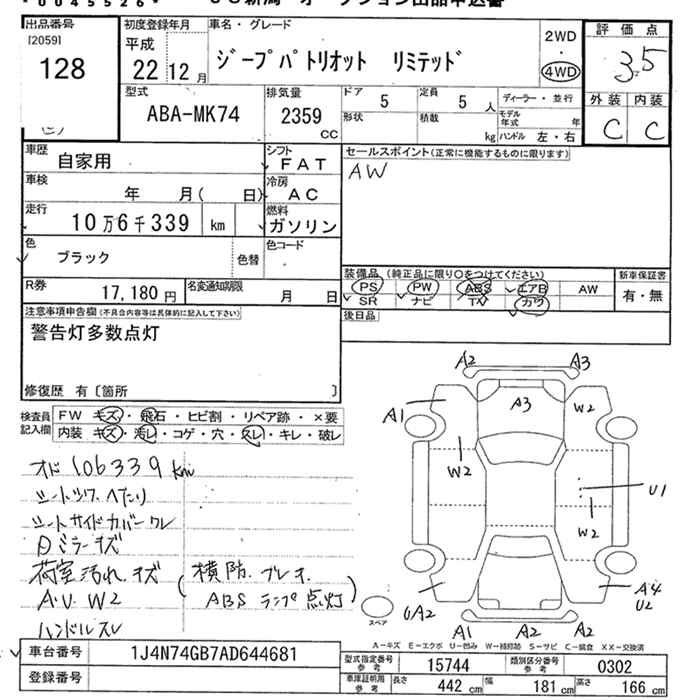 *0045526*
出品番号 初度登録年月 車名・グレード 2WD 評価点
[2059] 平成 ・
128 22 12月 ジープパトリオット リミテッド 4WD 3.5
型式 排気量 ドア 5 定員 5人 ディーラー・並行 外装 内装
ABA-MK74 2359 cc 形状 積載 kg モデル年式 年 C C
ハンドル 左・右
車歴 自家用 シフト FAT セールスポイント(正常に機能するものに限ります)
車検 年 月( 日) 冷房 AC AW
走行 10万6千339 km 燃料 ガソリン
色 ブラック 色替 色コード
装備品 (純正品に限り○をつけてください) 新車保証書
R券 17,180円 名変通知期限 月 日 PS PW ABS エアB AW 有・無
SR ナビ TV カワ
注意事項申告欄(不具合内容等は具体的に記入して下さい) 後日品
警告灯多数点灯
修復歴 有〔箇所 〕
検査員記入欄 FW キズ・飛石・ヒビ割・リペア跡・×要
内装 キズ・汚レ・コゲ・穴・スレ・キレ・破レ
A2 A3
A1 A3 W2
W2 U1
W2
オド 106339km
シートシワ ヘタリ
シートサイドカバーワレ
Dミラーキズ
荷室汚れ.キズ (横防.ブレーキ.
A.U W2 ABSランプ点灯)
ハンドルスレ
UA2 A4
U2
スペア A1 A2 A2
A-キズ E-エクボ U-凹み W-補修跡 S-サビ C-腐食 XX-交換済
車台番号 1J4N74GB7AD644681 型式指定番号 参考 15744 類別区分番号 参考 0302
登録番号 車庫証明用 参考 長さ 442cm 幅 181cm 高さ 166cm